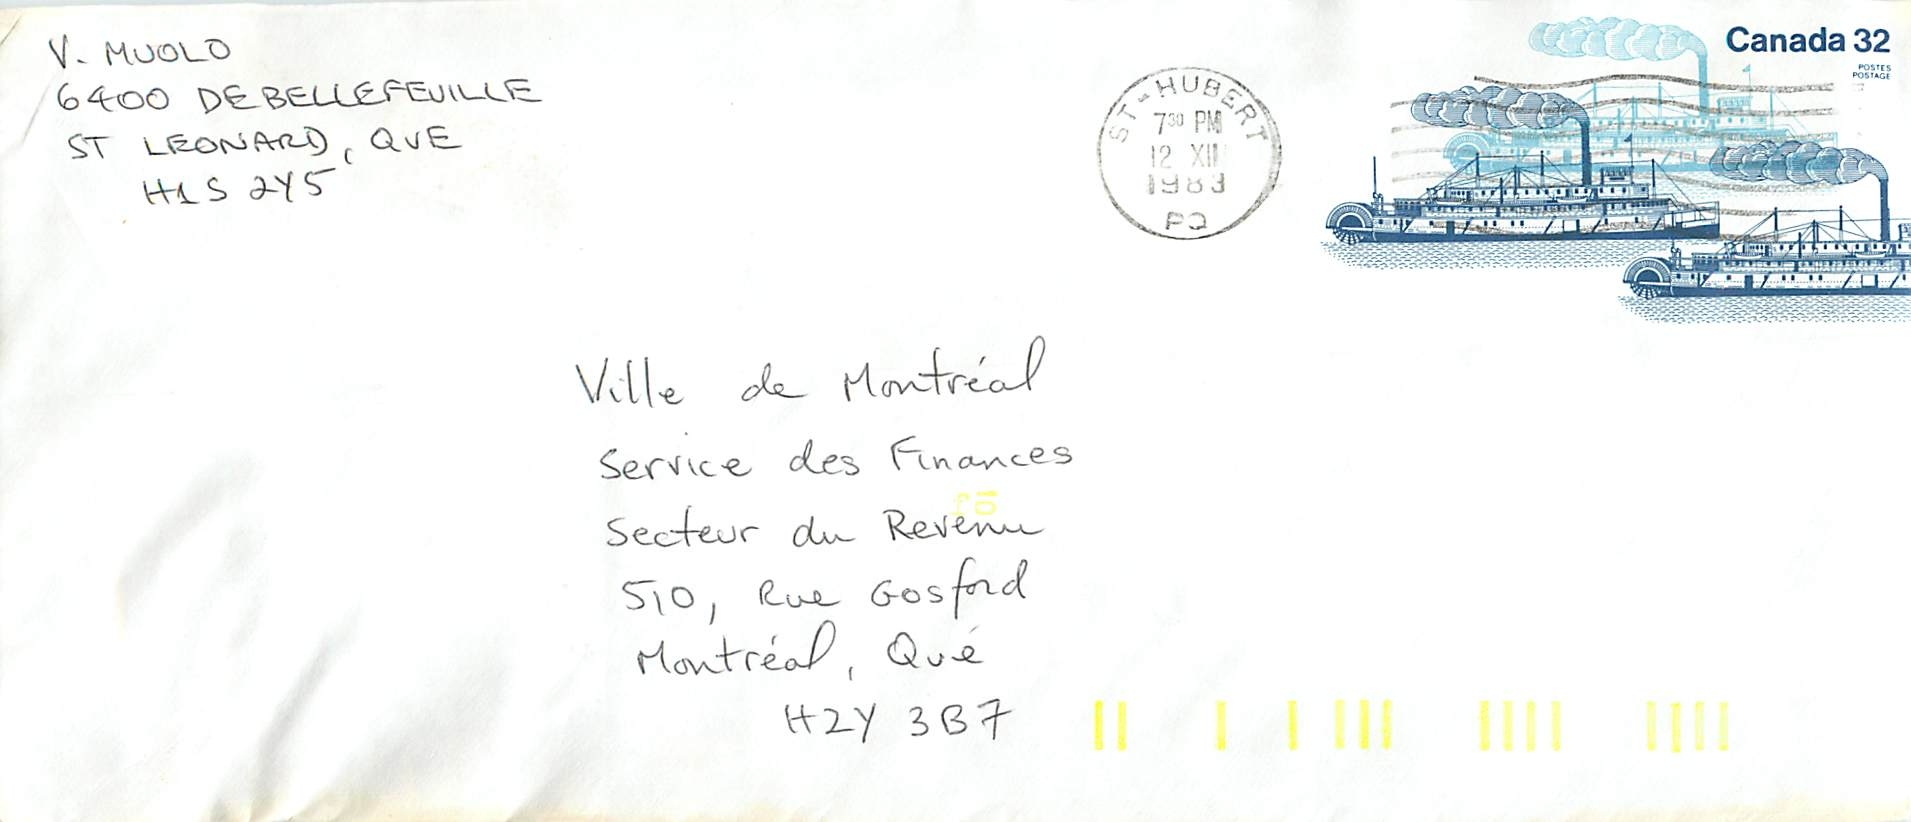 V. MUOLO
6400 DEBELLEFEUILLE
ST LEONARD, QUE
H1S 2Y5
ST-HUBERT
7 30 PM
12 XII
1983
PQ
Canada 32
POSTES
POSTAGE
Ville de Montréal
Service des Finances
Secteur du Revenu
510, Rue Gosford
Montréal, Qué
H2Y 3B7